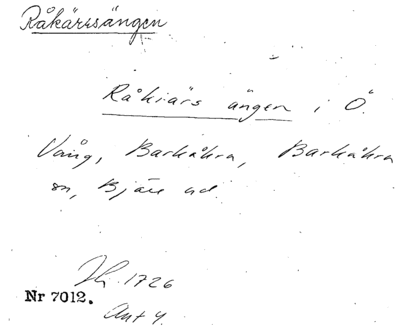 Råkärrsängen
Råkiärs ängen i Ö.
Vång, Barkåkra, Barkåkra
sn, Bjäre hd.
Jb. 1726
Nr 7012.
Ant 4.